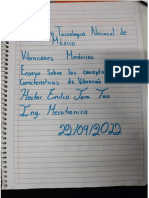 Tecnologico Nacional de
México
Vibraciones Mecánicas
Ensayo Sobre los conceptos
Características de Vibración
Hector Emilio
Ing. Mecatronica
22/09/2022